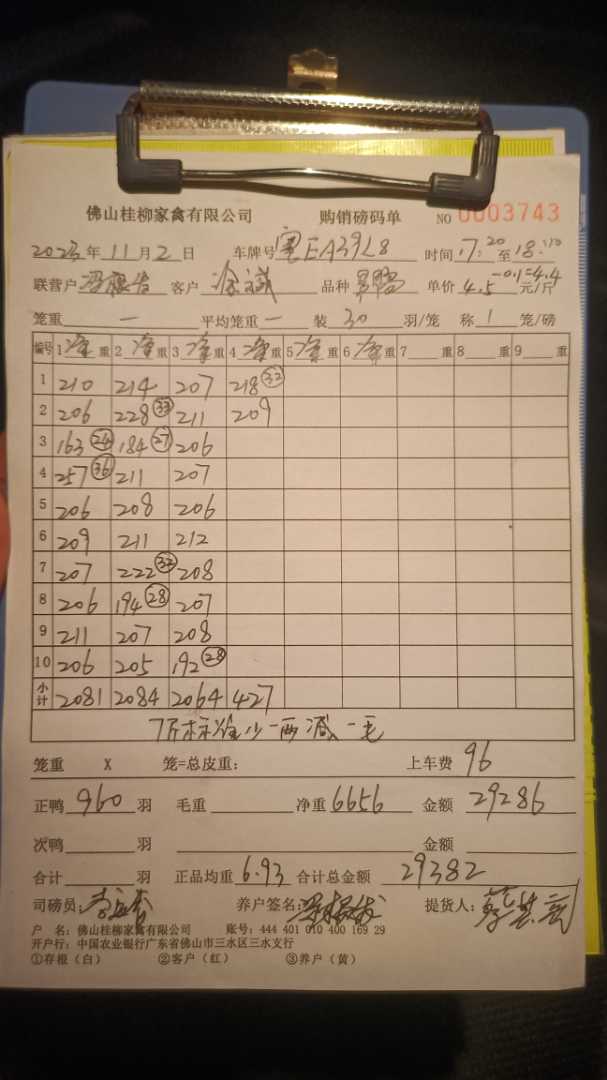 佛山桂柳家禽有限公司 购销磅码单 NO 0003743
2023年11月2日 车牌号 粤EA39L8 时间 17:20至18:10
联营户 客户 品种 单价 4.5-0.1=4.4 元/斤
笼重 一 平均笼重 一 装 30 羽/笼 称 1 笼/磅
编号 1净重 2净重 3净重 4净重 5净重 6净重 7 重 8 重 9 重
1 210 214 207 218㉜
2 206 228㉝ 211 209
3 163㉔ 184㉗ 206
4 257㊱ 211 207
5 206 208 206
6 209 211 212
7 207 222㉜ 208
8 206 194㉘ 207
9 211 207 208
10 206 205 192㉘
小计 2081 2084 2064 427
7斤标准少一两减一毛
笼重 X 笼=总皮重: 上车费 96
正鸭 960 羽 毛重 净重 6656 金额 29286
次鸭 羽 金额
合计 羽 正品均重 6.93 合计总金额 29382
司磅员: 养户签名: 提货人:
户 名: 佛山桂柳家禽有限公司 账号: 444 401 010 400 169 29
开户行: 中国农业银行广东省佛山市三水区三水支行
①存根(白) ②客户(红) ③养户(黄)